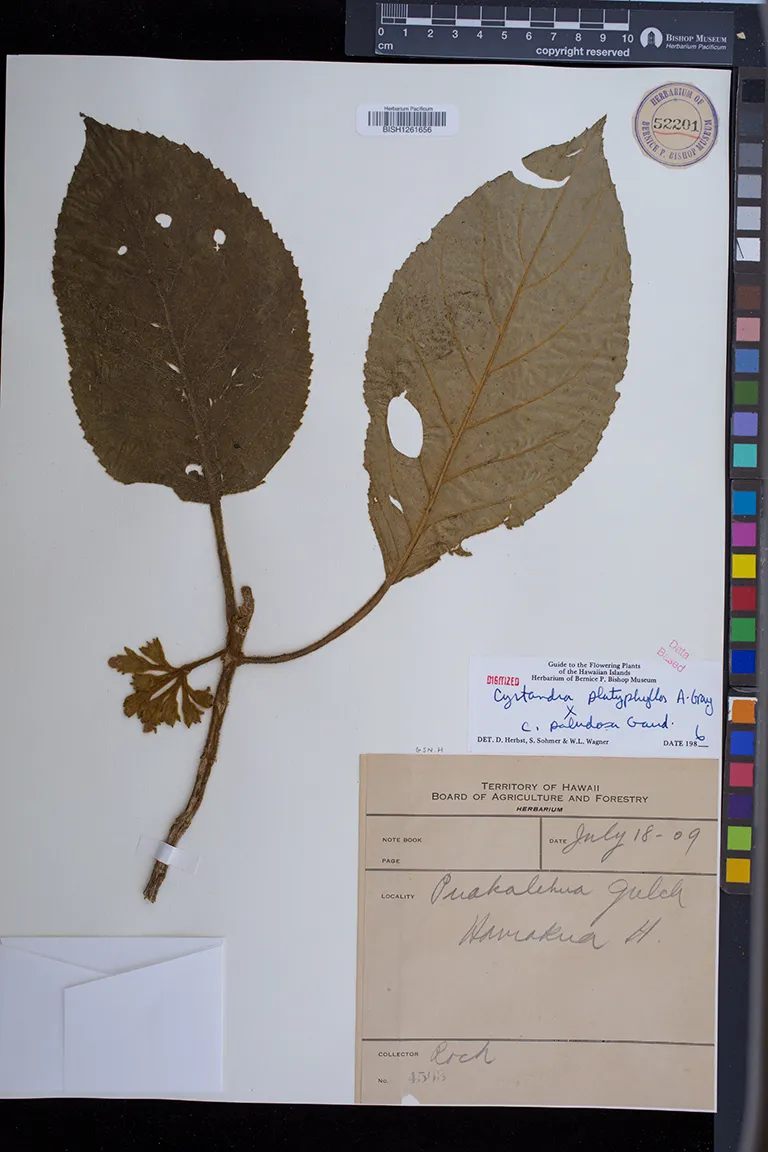 0 1 2 3 4 5 6 7 8 9 10
cm
copyright reserved
BISHOP MUSEUM
Herbarium Pacificum
Herbarium Pacificum
BISH1261656
HERBARIUM OF
52201
BERNICE P. BISHOP MUSEUM
Data
Based
Guide to the Flowering Plants
of the Hawaiian Islands
DIGITIZED
Herbarium of Bernice P. Bishop Museum
Cyrtandra platyphylla A. Gray
x
C. paludosa Gaud.
DET. D. Herbst, S. Sohmer & W.L. Wagner
DATE 1986
GSN.H
TERRITORY OF HAWAII
BOARD OF AGRICULTURE AND FORESTRY
HERBARIUM
NOTE BOOK
DATE July 18-09
PAGE
LOCALITY Puakalehua gulch
Hamakua H.
COLLECTOR Rock
No.